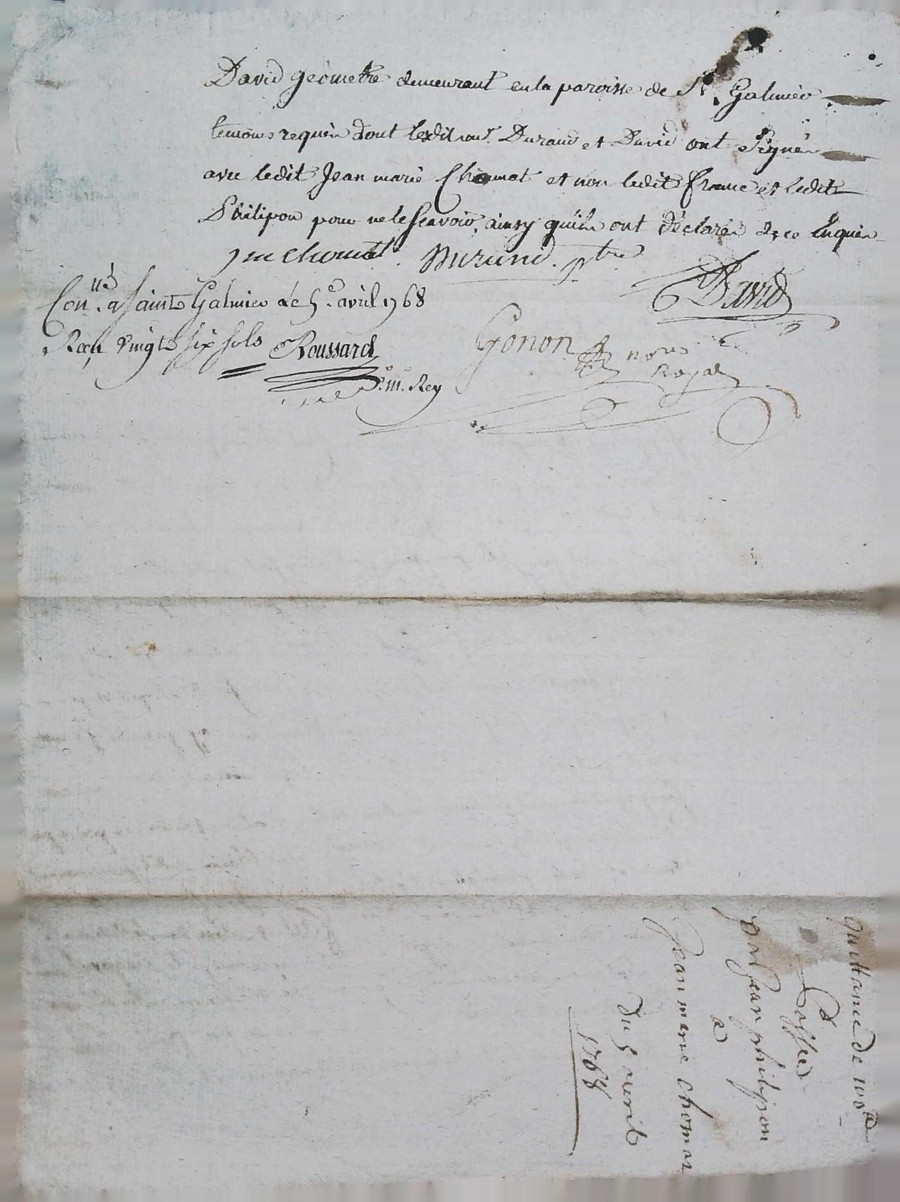 David géometre demeurant en la paroisse de St. Galmier
temoins requis dont lesdit srs. Durand et David ont Signé
avec ledit Jean marie Chomat et non ledit france et ledit
Philipon pour ne le scavoir, ainsy quils ont déclaré de ce Enquis
jm chomat. Durand. ptre
David
Con.lé a Saint Galmier Le 5e. avril 1768
Reçu vingt six sols Roussard
Gonon
nore
Royal
p.r m.r Rey
quittance de 100
Loffre
par Jean philipon
a
Jean marie chomat
Du 5 avril
1768